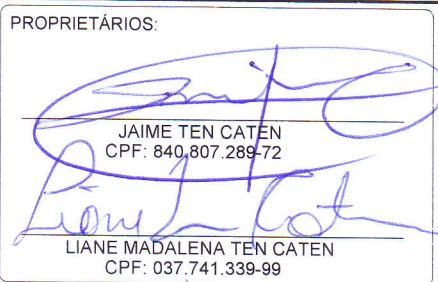 PROPRIETÁRIOS:
JAIME TEN CATEN
CPF: 840.807.289-72
Liane Ten Caten
LIANE MADALENA TEN CATEN
CPF: 037.741.339-99